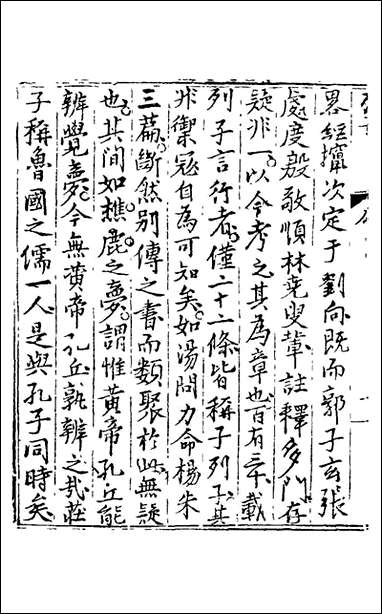 畧經攛次定于劉向既而郭子玄張
處度殷敬愼林堯叟輩註釋多門存
疑非一以今考之其爲章也百有三千載
列子言行者僅二十二條皆稱子列子其
非禦冦自為可知矣如湯問力命楊朱
三篇斷然别傳之書而類聚於此無疑
也其间如樵鹿之夢謂惟黄帝孔丘能
辨覺夣今無黄帝孔丘孰辨之哉莊
子稱魯國之儒一人是與孔子同時矣